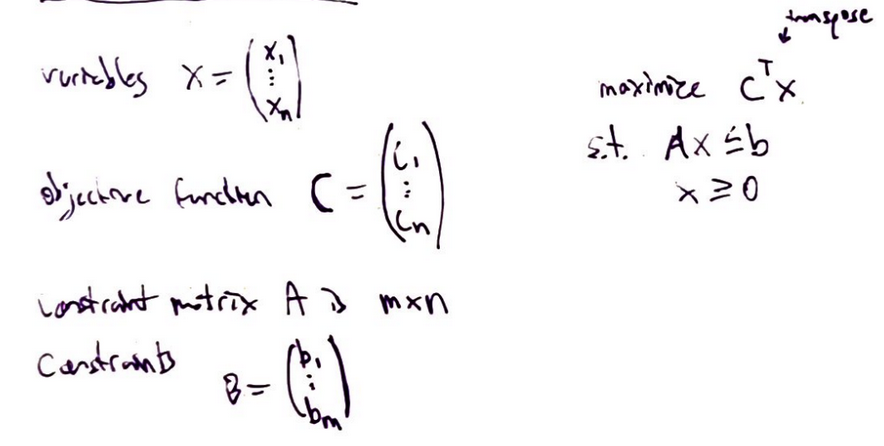 variables X = (x₁ ⋮ xₙ)
objective function C = (c₁ ⋮ cₙ)
constraint matrix A is m×n
Constraints B = (b₁ ⋮ bₘ)
transpose
maximize Cᵀx
s.t. Ax ≤ b
x ≥ 0